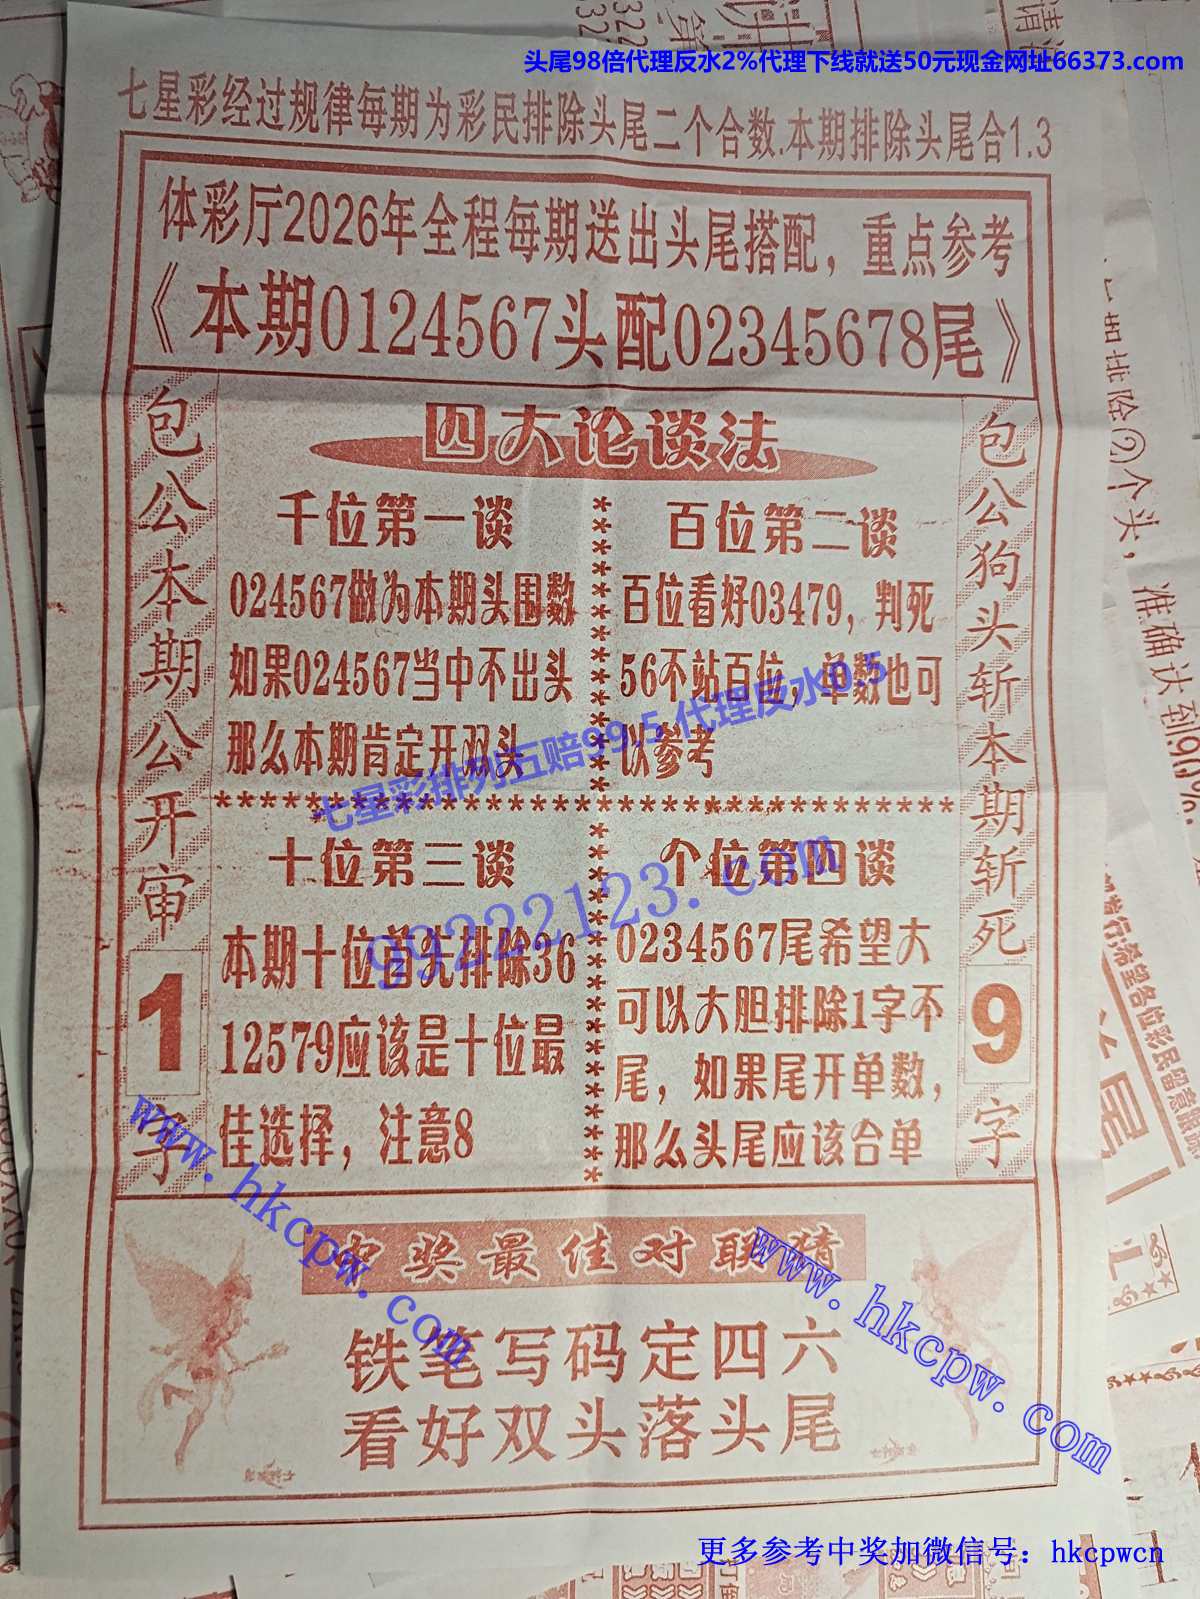 头尾98倍代理反水2%代理下线就送50元现金网址66373.com
七星彩经过规律每期为彩民排除头尾二个合数.本期排除头尾合1.3
体彩厅2026年全程每期送出头尾搭配，重点参考
《本期0124567头配02345678尾》
包公本期公开审1字
四大论谈法
千位第一谈
024567做为本期头围数
如果024567当中不出头
那么本期肯定开双头
百位第二谈
百位看好03479，判死
56不站百位，单数也可
以参考
七星彩排列五赔99.5 代理反水0.5
99222123.com
十位第三谈
本期十位首先排除36
12579应该是十位最
佳选择，注意8
个位第四谈
0234567尾希望大
可以大胆排除1字不
尾，如果尾开单数，
那么头尾应该合单
包公狗头斩本期斩死9字
www.hkcpw.com
www.hkcpw.com
中奖最佳对联猜
铁笔写码定四六
看好双头落头尾
更多参考中奖加微信号：hkcpwcn
个头，准确达到9
希望各位彩民留意